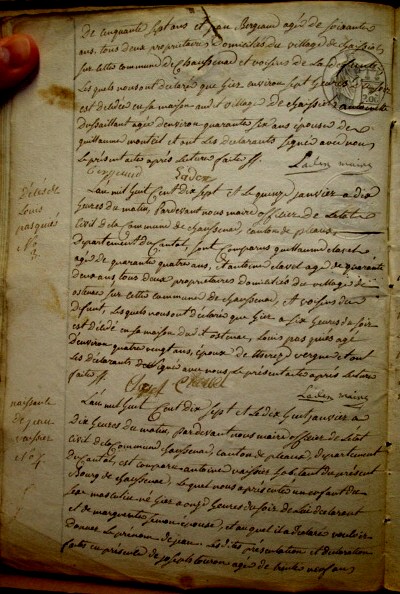 de cinquante sept ans et jean Bergeaud agé de soixante
ans, tous deux propriétaires domiciliés du village de
sur cette commune de Chaussenac et voisins de la
Lesquels nous ont declaré que hier environ sept heures
est décédée en sa maison audit village de
agée d'environ quarante six ans épouse de
guillaume monteil et ont les declarants signé avec nous
le présent acte après lecture faite
Décès de
Louis
No 3.
L'an mil huit cent dix sept et le quinze janvier a dix
heures du matin, Pardevant nous maire officier de l'état
Civil de la Commune de Chaussenac, canton de pleaux,
Departement du Cantal, sont comparus guillaume clavel
agé de quarante quatre ans, et antoine clavel agé de quarante
deux ans tous deux propriétaires domiciliés du village de
sur cette commune de chaussenac, et voisins du
defunt, lesquels nous ont declaré que hier a six heures du soir
est décédé en sa maison du Louis agé
d'environ quatre vingt ans, époux de et ont
les déclarants signé avec nous le présent acte après lecture
faite
naissance
de jean
vaissier
No 4
L'an mil huit Cent dix sept et le dix huit janvier a
dix heures du matin, Pardevant nous maire officier de l'état
Civil de la Commune de Chaussenac, canton de pleaux, departement
du Cantal, est comparu antoine vaissier habitant du présent
Bourg de Chaussenac, lequel nous a présenté un enfant du
sexe masculin né hier a onze heures du soir de lui declarant
et de marguerite simon épouse, et auquel il a declaré vouloir
donner le prénom de jean. Les dites présentation et declaration
faites en présence de joseph agé de trente neuf ans